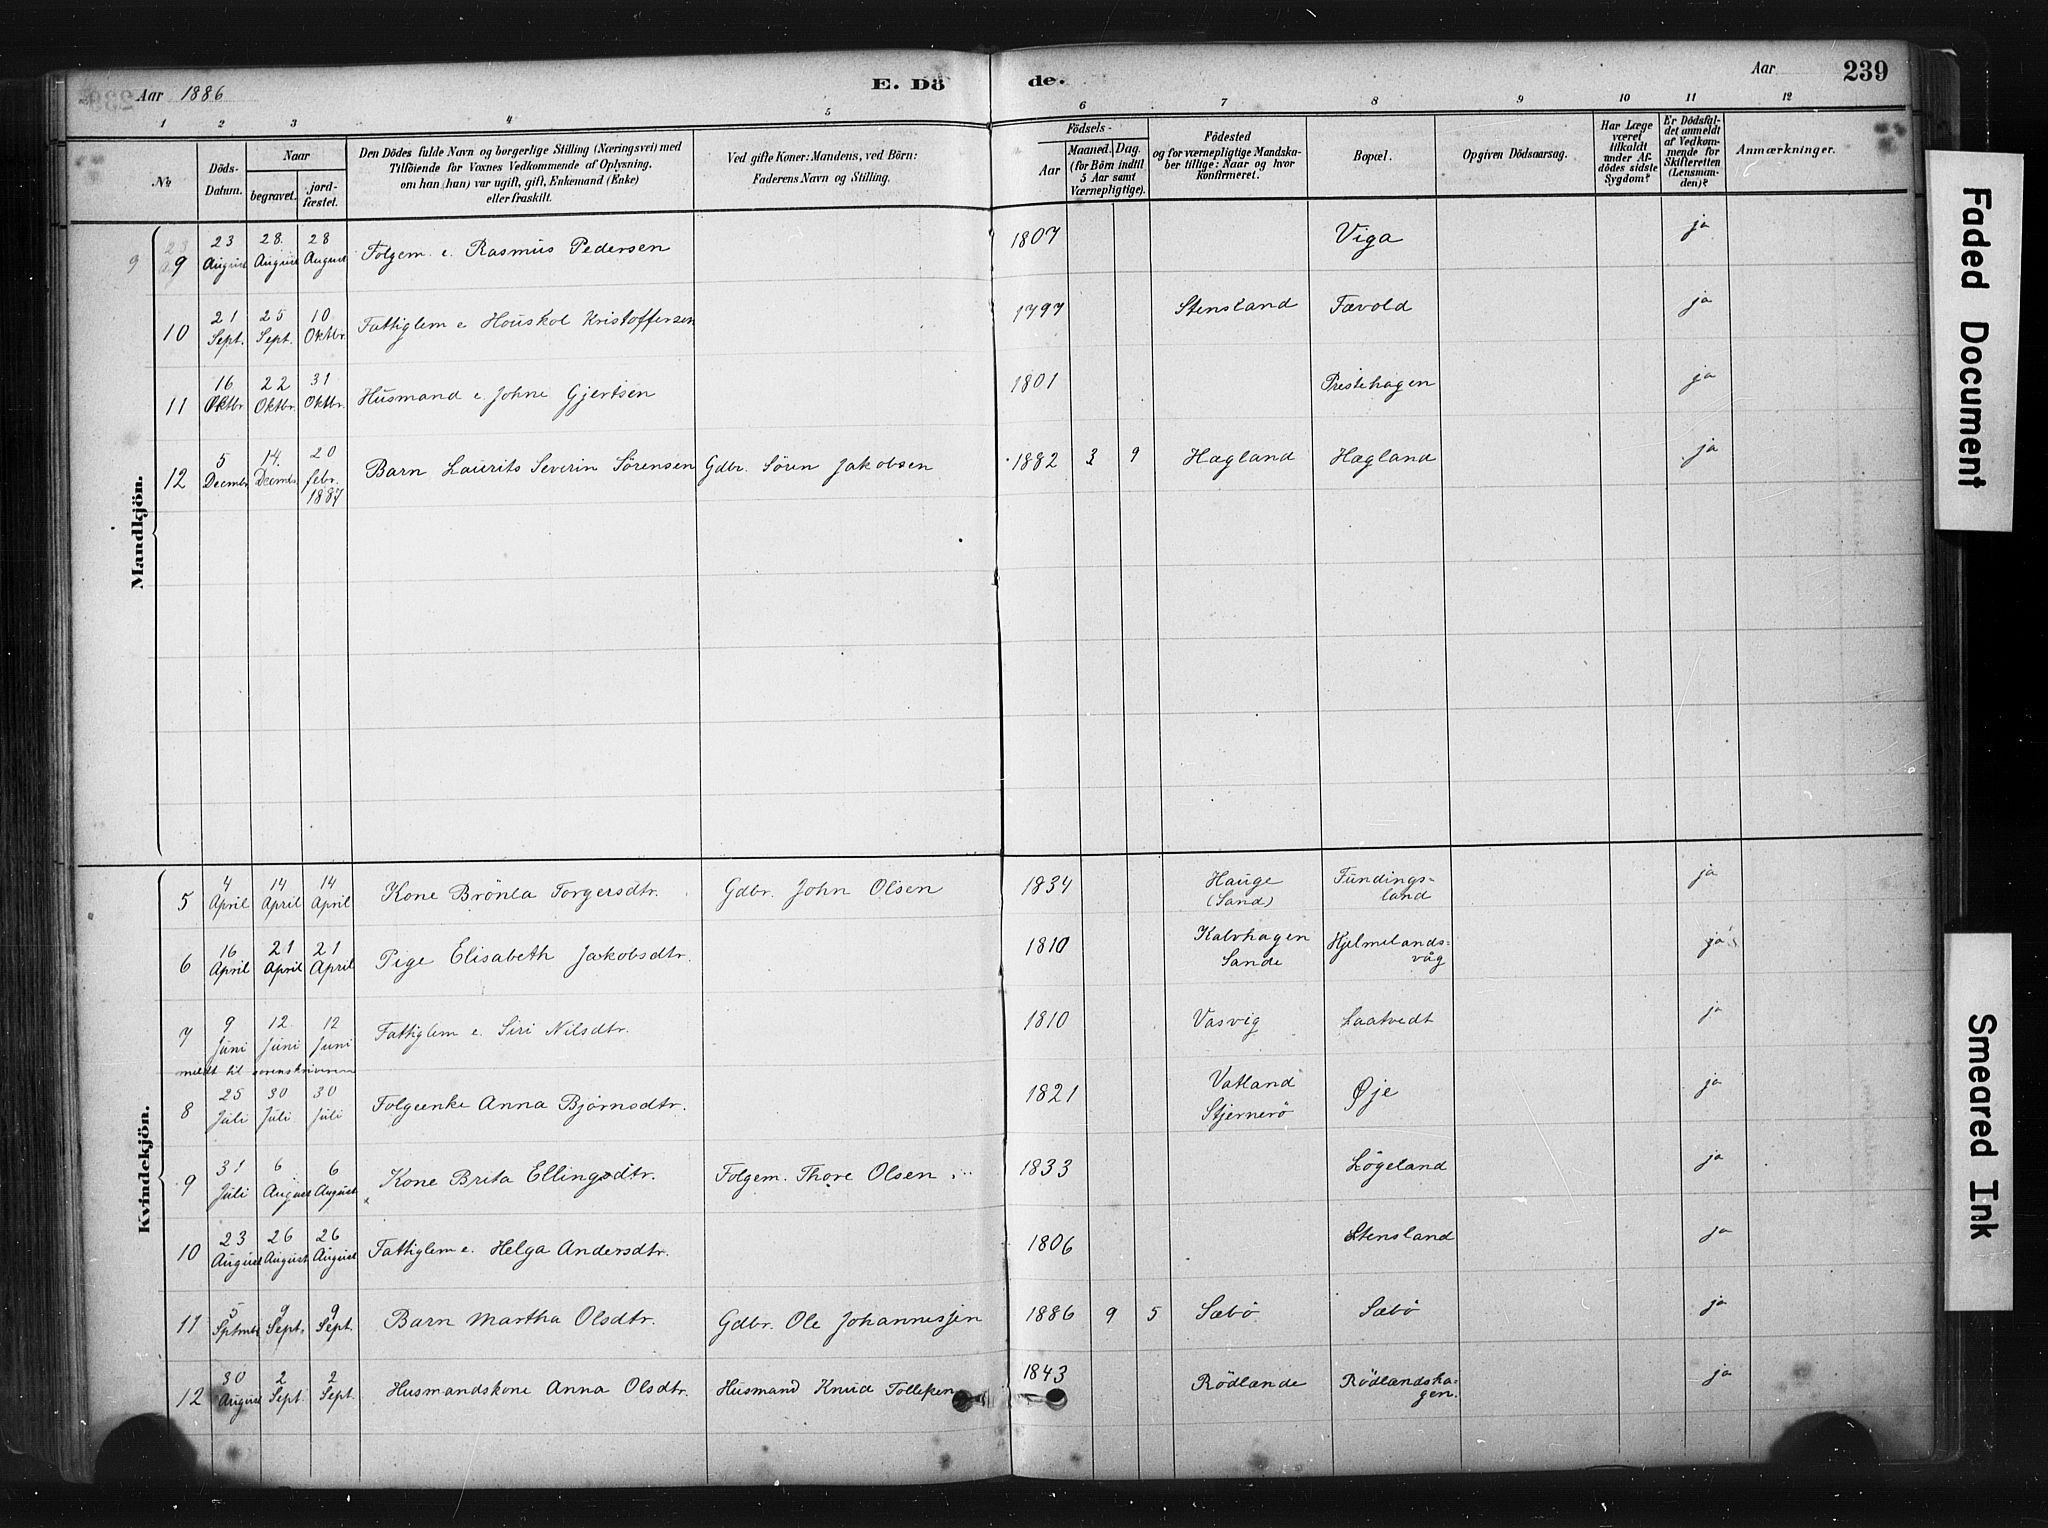 Aar 1886
E. Dö
de.
Aar
239
1 2 3 4 5 6 7 8 9 10 11 12
No
Döds-Datum.
Naar
begravet.
jordfæstet.
Den Dödes fulde Navn og borgerlige Stilling (Næringsvei) med
Tilföiende for Voxnes Vedkommende af Oplysning,
om han (hun) var ugift, gift, Enkemand (Enke)
eller fraskilt.
Ved gifte Koner: Mandens, ved Börn:
Faderens Navn og Stilling.
Födsels-
Aar
Maaned. Dag.
(for Börn indtil
5 Aar samt
Værnepligtige).
Födested
og for værnepligtige Mandska-
ber tillige: Naar og hvor
konfirmeret.
Bopæl.
Opgiven Dödsaarsag.
Har Læge
været
tilkaldt
under Af-
dödes sidste
Sygdom?
Er Dödsfal-
det anmeldt
af Vedkom-
mende for
Skifteretten
(Lensman-
den)?
Anmærkninger.
Mandkjön.
9 23 August 28 August 28 August Folgem. e. Rasmus Pedersen 1807 Viga ja
10 21 Sept. 25 Sept. 10 Oktbr. Fattiglem e Houskol Kristoffersen 1797 Stensland Fævold ja
11 16 Oktbr 22 Oktbr. 31 Oktbr. Husmand e Johne Gjertsen 1801 Prestehagen ja
12 5 Decmbr 14. Decmbr. 20 febr. 1887 Barn Laurits Severin Sørensen Gdbr. Sören Jakobsen 1882 3 9 Hægland Hægland ja
Kvindekjön.
5 4 April 14 April 14 April Kone Brönla Torgersdtr. Gdbr. John Olsen 1834 Hauge (Sand) Fundings-land ja
6 16 April 21 April 21 April Pige Elisabeth Jakobsdtr. 1810 Kalvhagen Sande Hjelmelands-våg ja
7 9 Juni 12 Juni 12 Juni Fattiglem e. Siri Nilsdtr. 1810 Vasvig Laatvedt ja
meldt til sorenskriveren
8 25 Juli 30 Juli. 30 Juli Folgeenke Anna Bjørnsdtr. 1821 Vatland Stjernerö Øje ja
9 31 Juli 6 August 6 August Kone Brita Ellingsdtr. Folgem. Thore Olsen 1833 Løgeland ja
10 23 August 26 August 26 August Fattiglem e. Helga Andersdtr. 1806 Stensland ja
11 5 Sptmbr 9 Sept. 9 Sept. Barn Martha Olsdtr. Gdbr. Ole Johannissen 1886 9 5 Sæbö Sæbö ja
12 30 August 2 Sept. 2 Sept. Husmandskone Anna Olsdtr. Husmand Knud Tollefsen 1843 Rödlande Rödlandsha-gen. ja
Faded Document
Smeared Ink